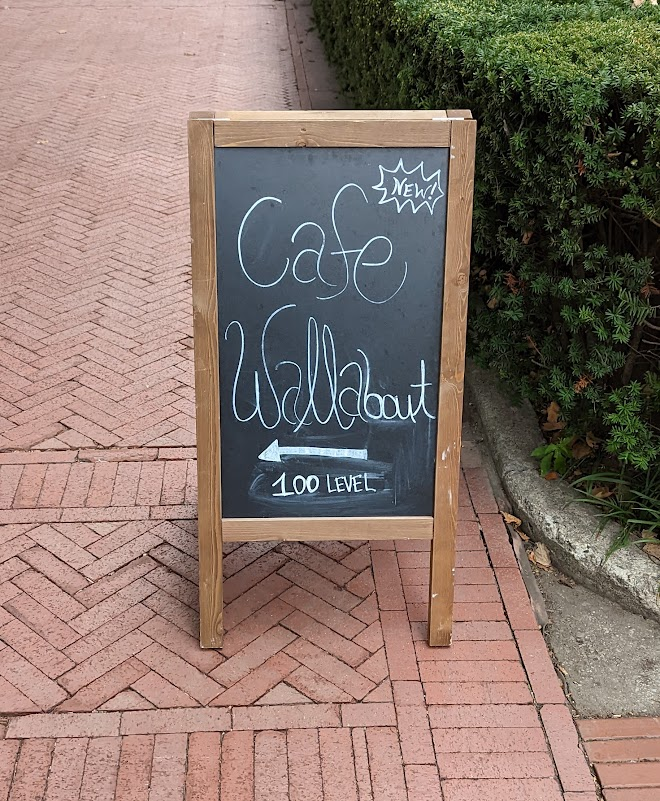 NEW!
Cafe
Wallabout
100 LEVEL